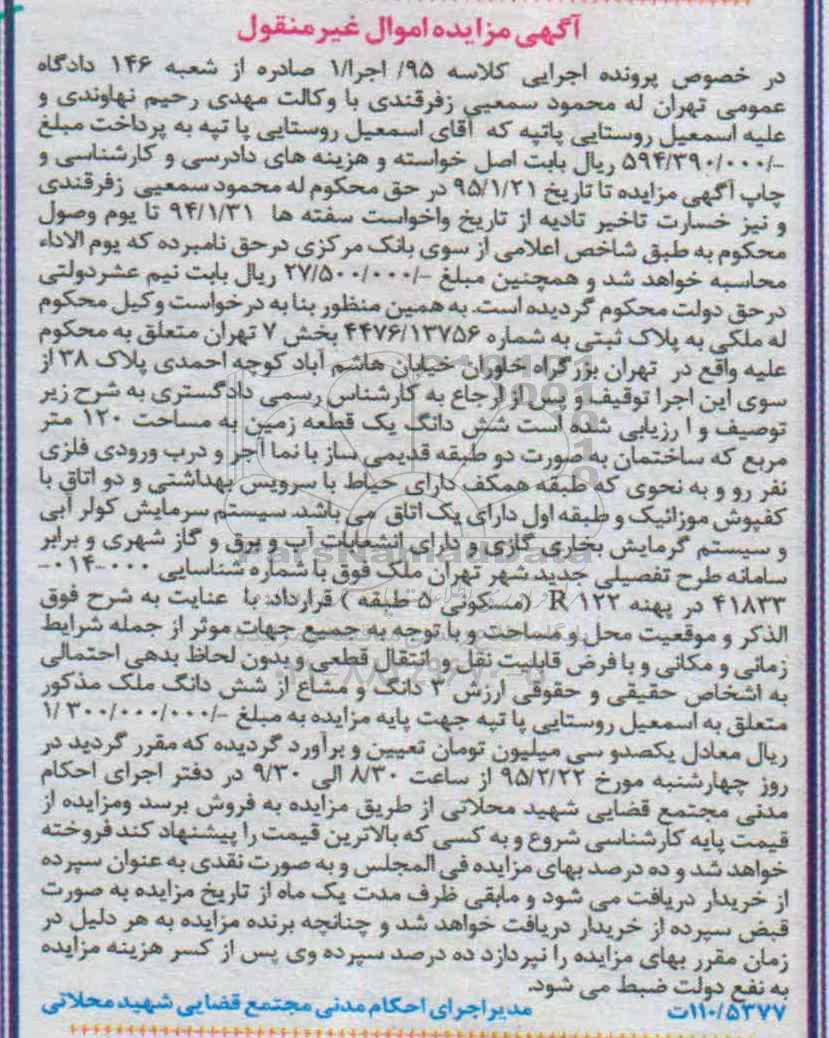 آگهی مزایده اموال غیر منقول
در خصوص پرونده اجرایی کلاسه ۹۵/ اجرا/۱ صادره از شعبه ۱۴۶ دادگاه
عمومی تهران له محمود سمعیی زفرقندی با وکالت مهدی رحیم نهاوندی و
علیه اسمعیل روستایی پاتپه که آقای اسمعیل روستایی پا تپه به پرداخت مبلغ
-/۵۹۴/۳۹۰/۰۰۰ ریال بابت اصل خواسته و هزینه های دادرسی و کارشناسی و
چاپ آگهی مزایده تا تاریخ ۹۵/۱/۲۱ در حق محکوم له محمود سمعیی زفرقندی
و نیز خسارت تاخیر تادیه از تاریخ واخواست سفته ها ۹۴/۱/۳۱ تا یوم وصول
محکوم به طبق شاخص اعلامی از سوی بانک مرکزی درحق نامبرده که یوم الاداء
محاسبه خواهد شد و همچنین مبلغ -/۲۷/۵۰۰/۰۰۰ ریال بابت نیم عشردولتی
درحق دولت محکوم گردیده است. به همین منظور بنا به درخواست وکیل محکوم
له ملکی به پلاک ثبتی به شماره ۴۴۷۶/۱۳۷۵۶ بخش ۷ تهران متعلق به محکوم
علیه واقع در تهران بزرگراه خاوران خیابان هاشم آباد کوچه احمدی پلاک ۳۸ از
سوی این اجرا توقیف و پس از ارجاع به کارشناس رسمی دادگستری به شرح زیر
توصیف و ا رزیابی شده است شش دانگ یک قطعه زمین به مساحت ۱۲۰ متر
مربع که ساختمان به صورت دو طبقه قدیمی ساز با نما آجر و درب ورودی فلزی
نفر رو و به نحوی که طبقه همکف دارای حیاط با سرویس بهداشتی و دو اتاق با
کفپوش موزائیک و طبقه اول دارای یک اتاق می باشد. سیستم سرمایش کولر آبی
و سیستم گرمایش بخاری گازی و دارای انشعابات آب و برق و گاز شهری و برابر
سامانه طرح تفصیلی جدید شهر تهران ملک فوق با شماره شناسایی ۰۰۰-۰۱۴-
۴۱۸۳۳ در پهنه R ۱۲۲ (مسکونی ۵ طبقه ) قرارداد: با عنایت به شرح فوق
الذکر و موقعیت محل و مساحت و با توجه به جمیع جهات موثر از جمله شرایط
زمانی و مکانی و با فرض قابلیت نقل و انتقال قطعی و بدون لحاظ بدهی احتمالی
به اشخاص حقیقی و حقوقی ارزش ۲ دانگ و مشاع از شش دانگ ملک مذکور
متعلق به اسمعیل روستایی پا تپه جهت پایه مزایده به مبلغ -/۱/۳۰۰/۰۰۰/۰۰۰
ریال معادل یکصدو سی میلیون تومان تعیین و برآورد گردیده که مقرر گردید در
روز چهارشنبه مورخ ۹۵/۲/۲۲ از ساعت ۸/۳۰ الی ۹/۳۰ در دفتر اجرای احکام
مدنی مجتمع قضایی شهید محلاتی از طریق مزایده به فروش برسد ومزایده از
قیمت پایه کارشناسی شروع و به کسی که بالاترین قیمت را پیشنهاد کند فروخته
خواهد شد و ده درصد بهای مزایده فی المجلس و به صورت نقدی به عنوان سپرده
از خریدار دریافت می شود و مابقی ظرف مدت یک ماه از تاریخ مزایده به صورت
قبض سپرده از خریدار دریافت خواهد شد و چنانچه برنده مزایده به هر دلیل در
زمان مقرر بهای مزایده را نپردازد ده درصد سپرده وی پس از کسر هزینه مزایده
به نفع دولت ضبط می شود.
۱۱۰/۵۳۷۷ت مدیر اجرای احکام مدنی مجتمع قضایی شهید محلاتی
ParsNamadData